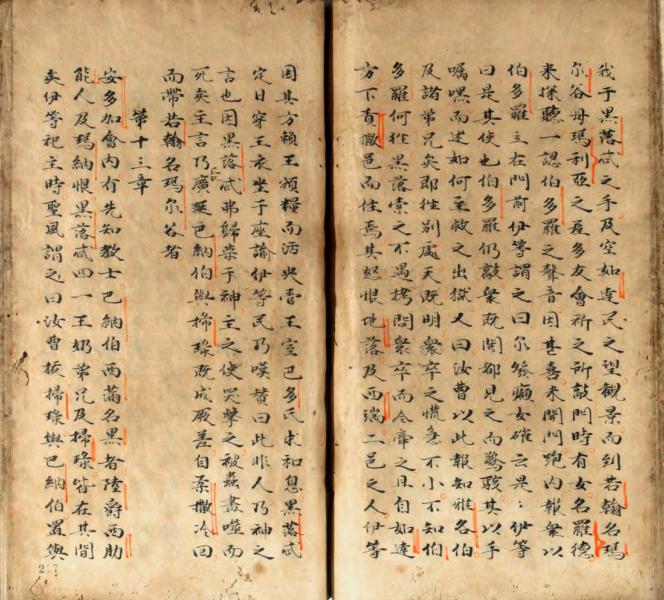 我于黑落忒之手及空如達民之望覌景而到若翰名瑪
尔谷母瑪利亞之屋多友會祈之所敲門時有女名羅德
来探聽一認伯多羅之聲音因甚喜未開門跑内報衆以
伯多羅立在門前伊等謂之曰尔發癲女確云是〻伊等
曰是其使也伯多羅仍敲衆既開郤見之而驚駭其以手
嘱嘿而述如何主救之出獄又曰汝曹以此報知雅各伯
及諸弟兄矣即徃别處天既明衆卒之慌急不小不知伯
多羅何徃黑落索之不遇拷問衆卒而令帶之且自如達
方下責撒邑而住焉其怒恨地落及西瑞二邑之人伊等
因其方賴王頒糧而活央王室巴多氏求和息黑落忒
定日穿王衣坐于座諭伊等民乃嘆賛曰此非人乃神之
言也因黑落忒弗歸榮于神主之使擊之被蟲盡噬而
死矣主言乃廣長延巴納伯與掃琭既成厥差自柔撒冷回
而帶若翰名瑪尔谷者
第十三章
安多加會内有先知教士巴納伯西滿名黑者陸爵西肋
能人及瑪納恨黑落忒四一王奶弟兄及掃琭皆在其間
矣伊等祀主時聖風謂之曰汝曹拔掃琭與巴納伯置與